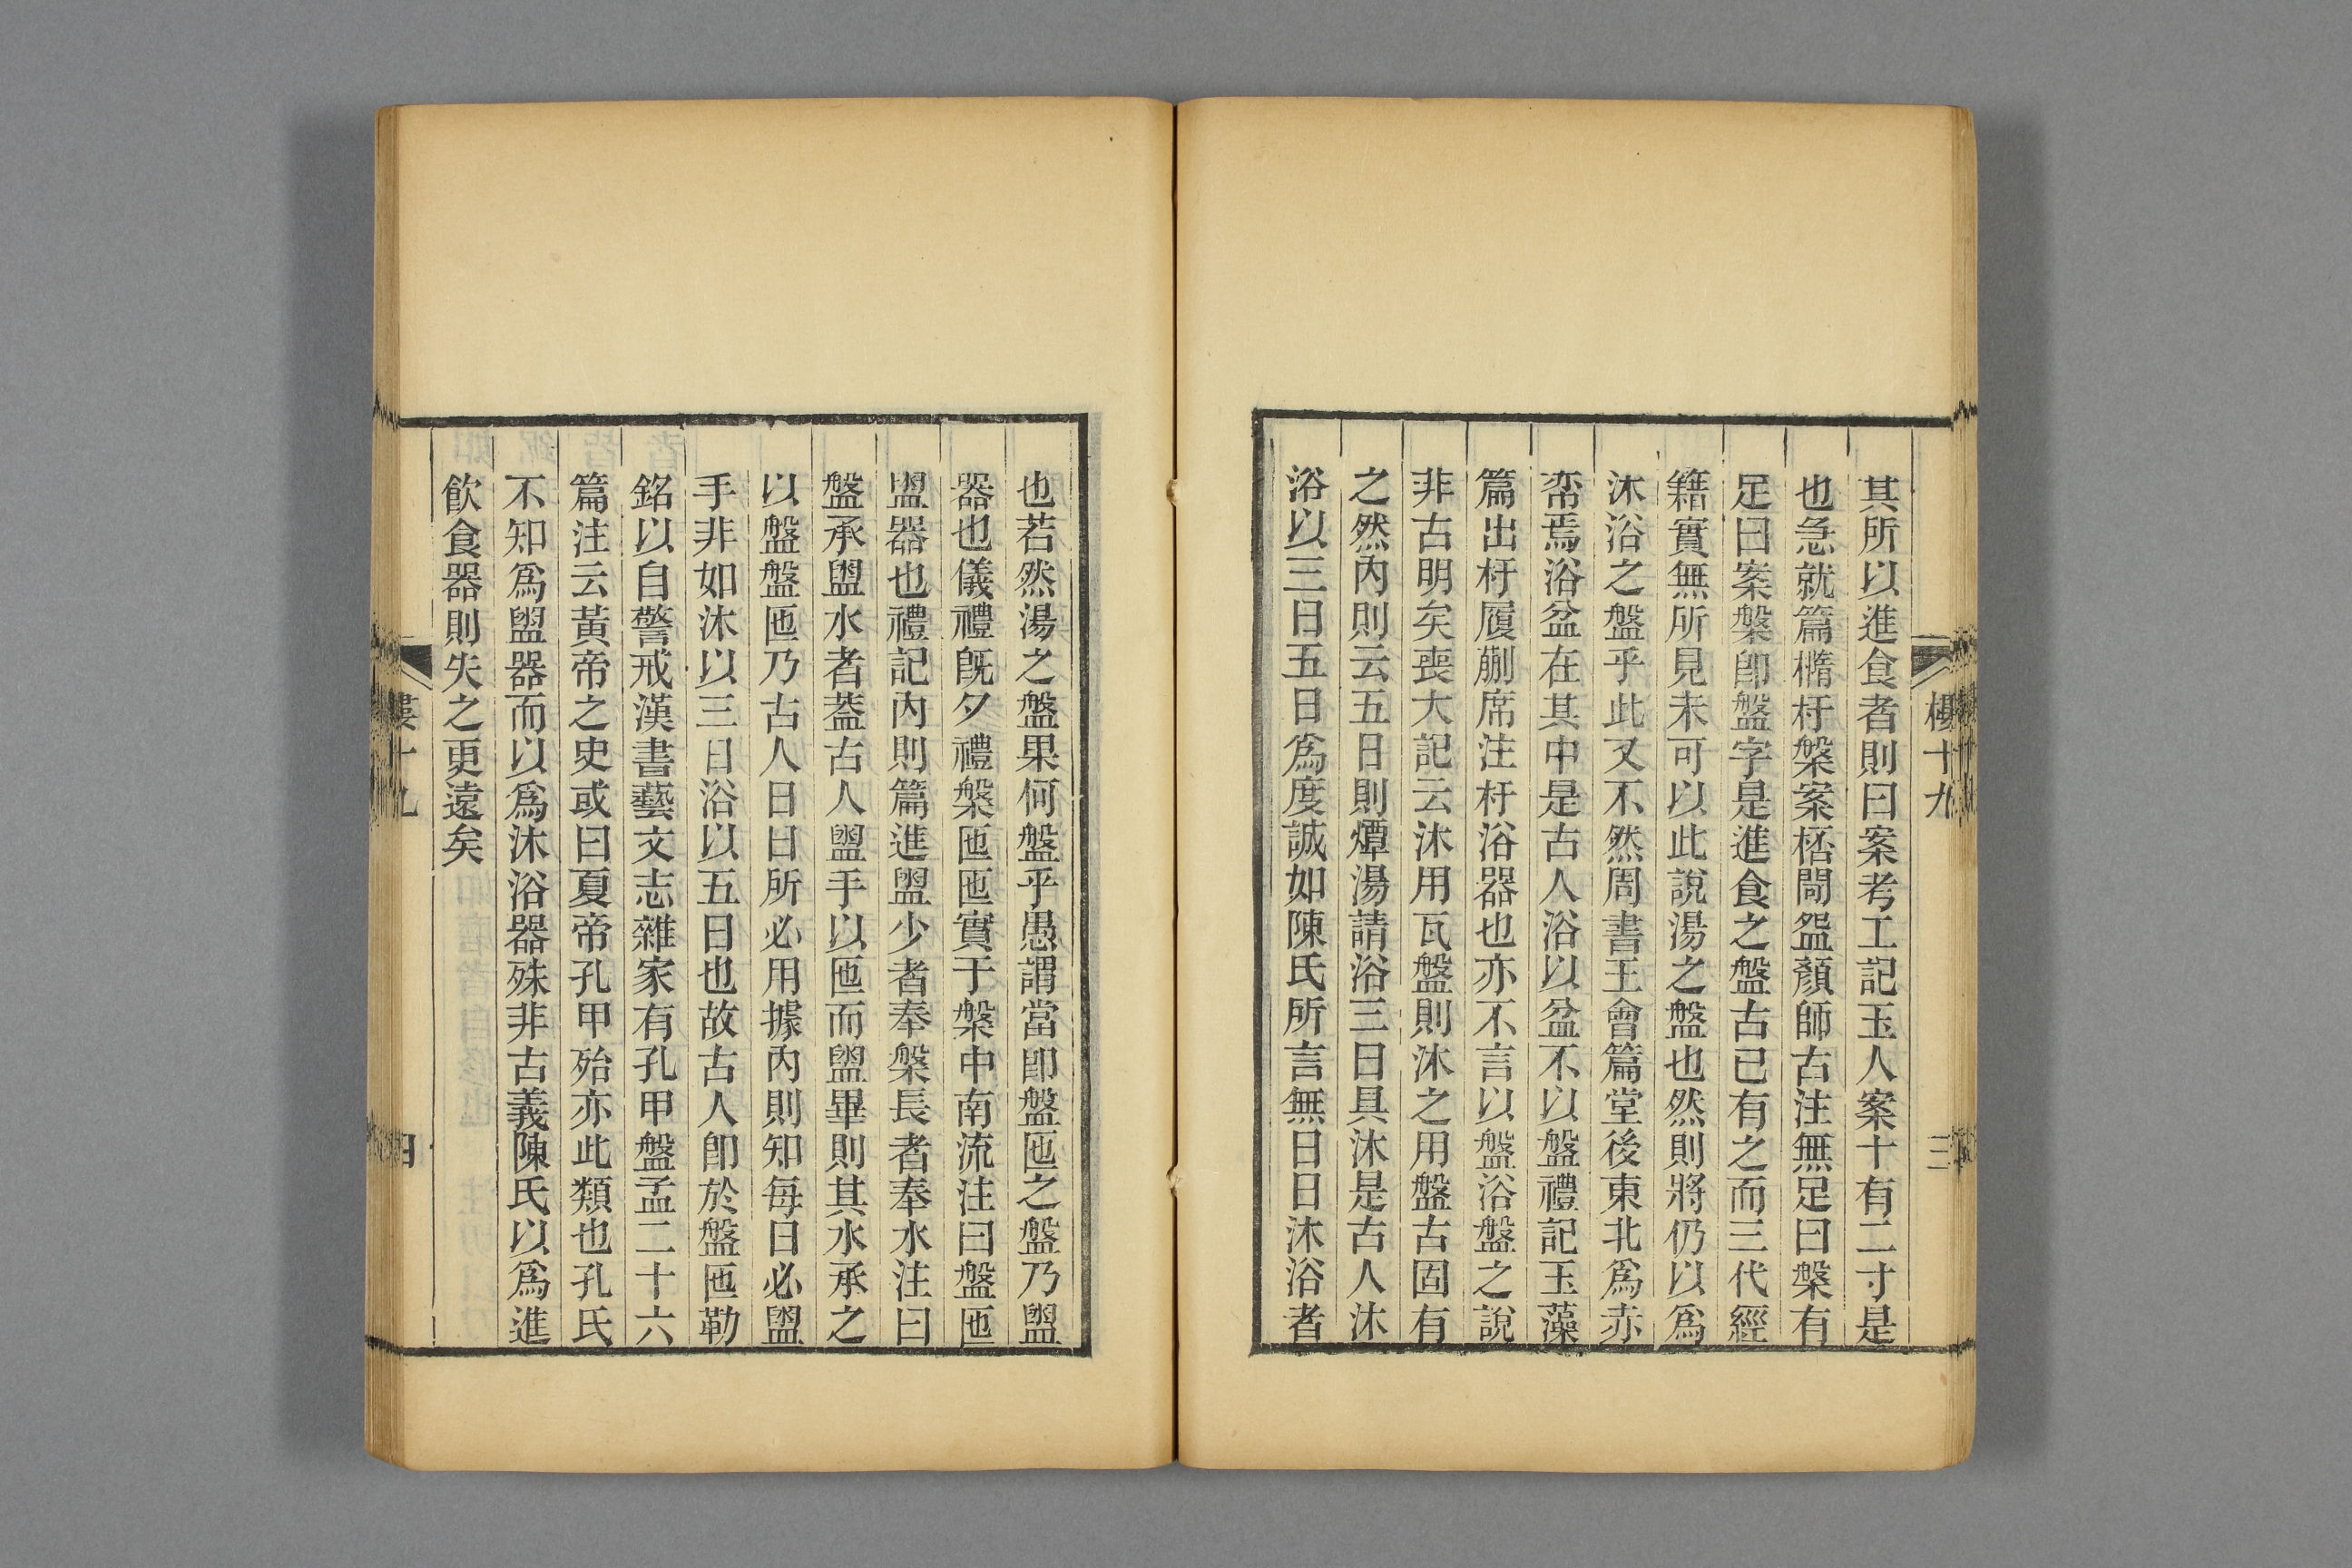 其所以進食者則曰案考工記玉人案十有二寸是
也急就篇橢杅槃案桮閜盌顏師古注無足曰槃有
足曰案槃卽盤字是進食之盤古已有之而三代經
籍實無所見未可以此說湯之盤也然則將仍以爲
沐浴之盤乎此又不然周書王會篇堂後東北爲赤
帟焉浴盆在其中是古人浴以盆不以盤禮記玉藻
篇出杅履蒯席注杅浴器也亦不言以盤浴盤之說
非古明矣喪大記云沐用瓦盤則沐之用盤古固有
之然內則云五日則燂湯請浴三日具沐是古人沐
浴以三日五日爲度誠如陳氏所言無日日沐浴者
樓十九
三
也若然湯之盤果何盤乎愚謂當卽盤匜之盤乃盥
器也儀禮旣夕禮槃匜匜實于槃中南流注曰盤匜
盥器也禮記內則篇進盥少者奉槃長者奉水注曰
盤承盥水者蓋古人盥手以匜而盥畢則其水承之
以盤盤匜乃古人日日所必用據內則知每日必盥
手非如沐以三日浴以五日也故古人卽於盤匜勒
銘以自警戒漢書藝文志雜家有孔甲盤盂二十六
篇注云黃帝之史或曰夏帝孔甲殆亦此類也孔氏
不知爲盥器而以爲沐浴器殊非古義陳氏以爲進
飮食器則失之更遠矣
十九
四